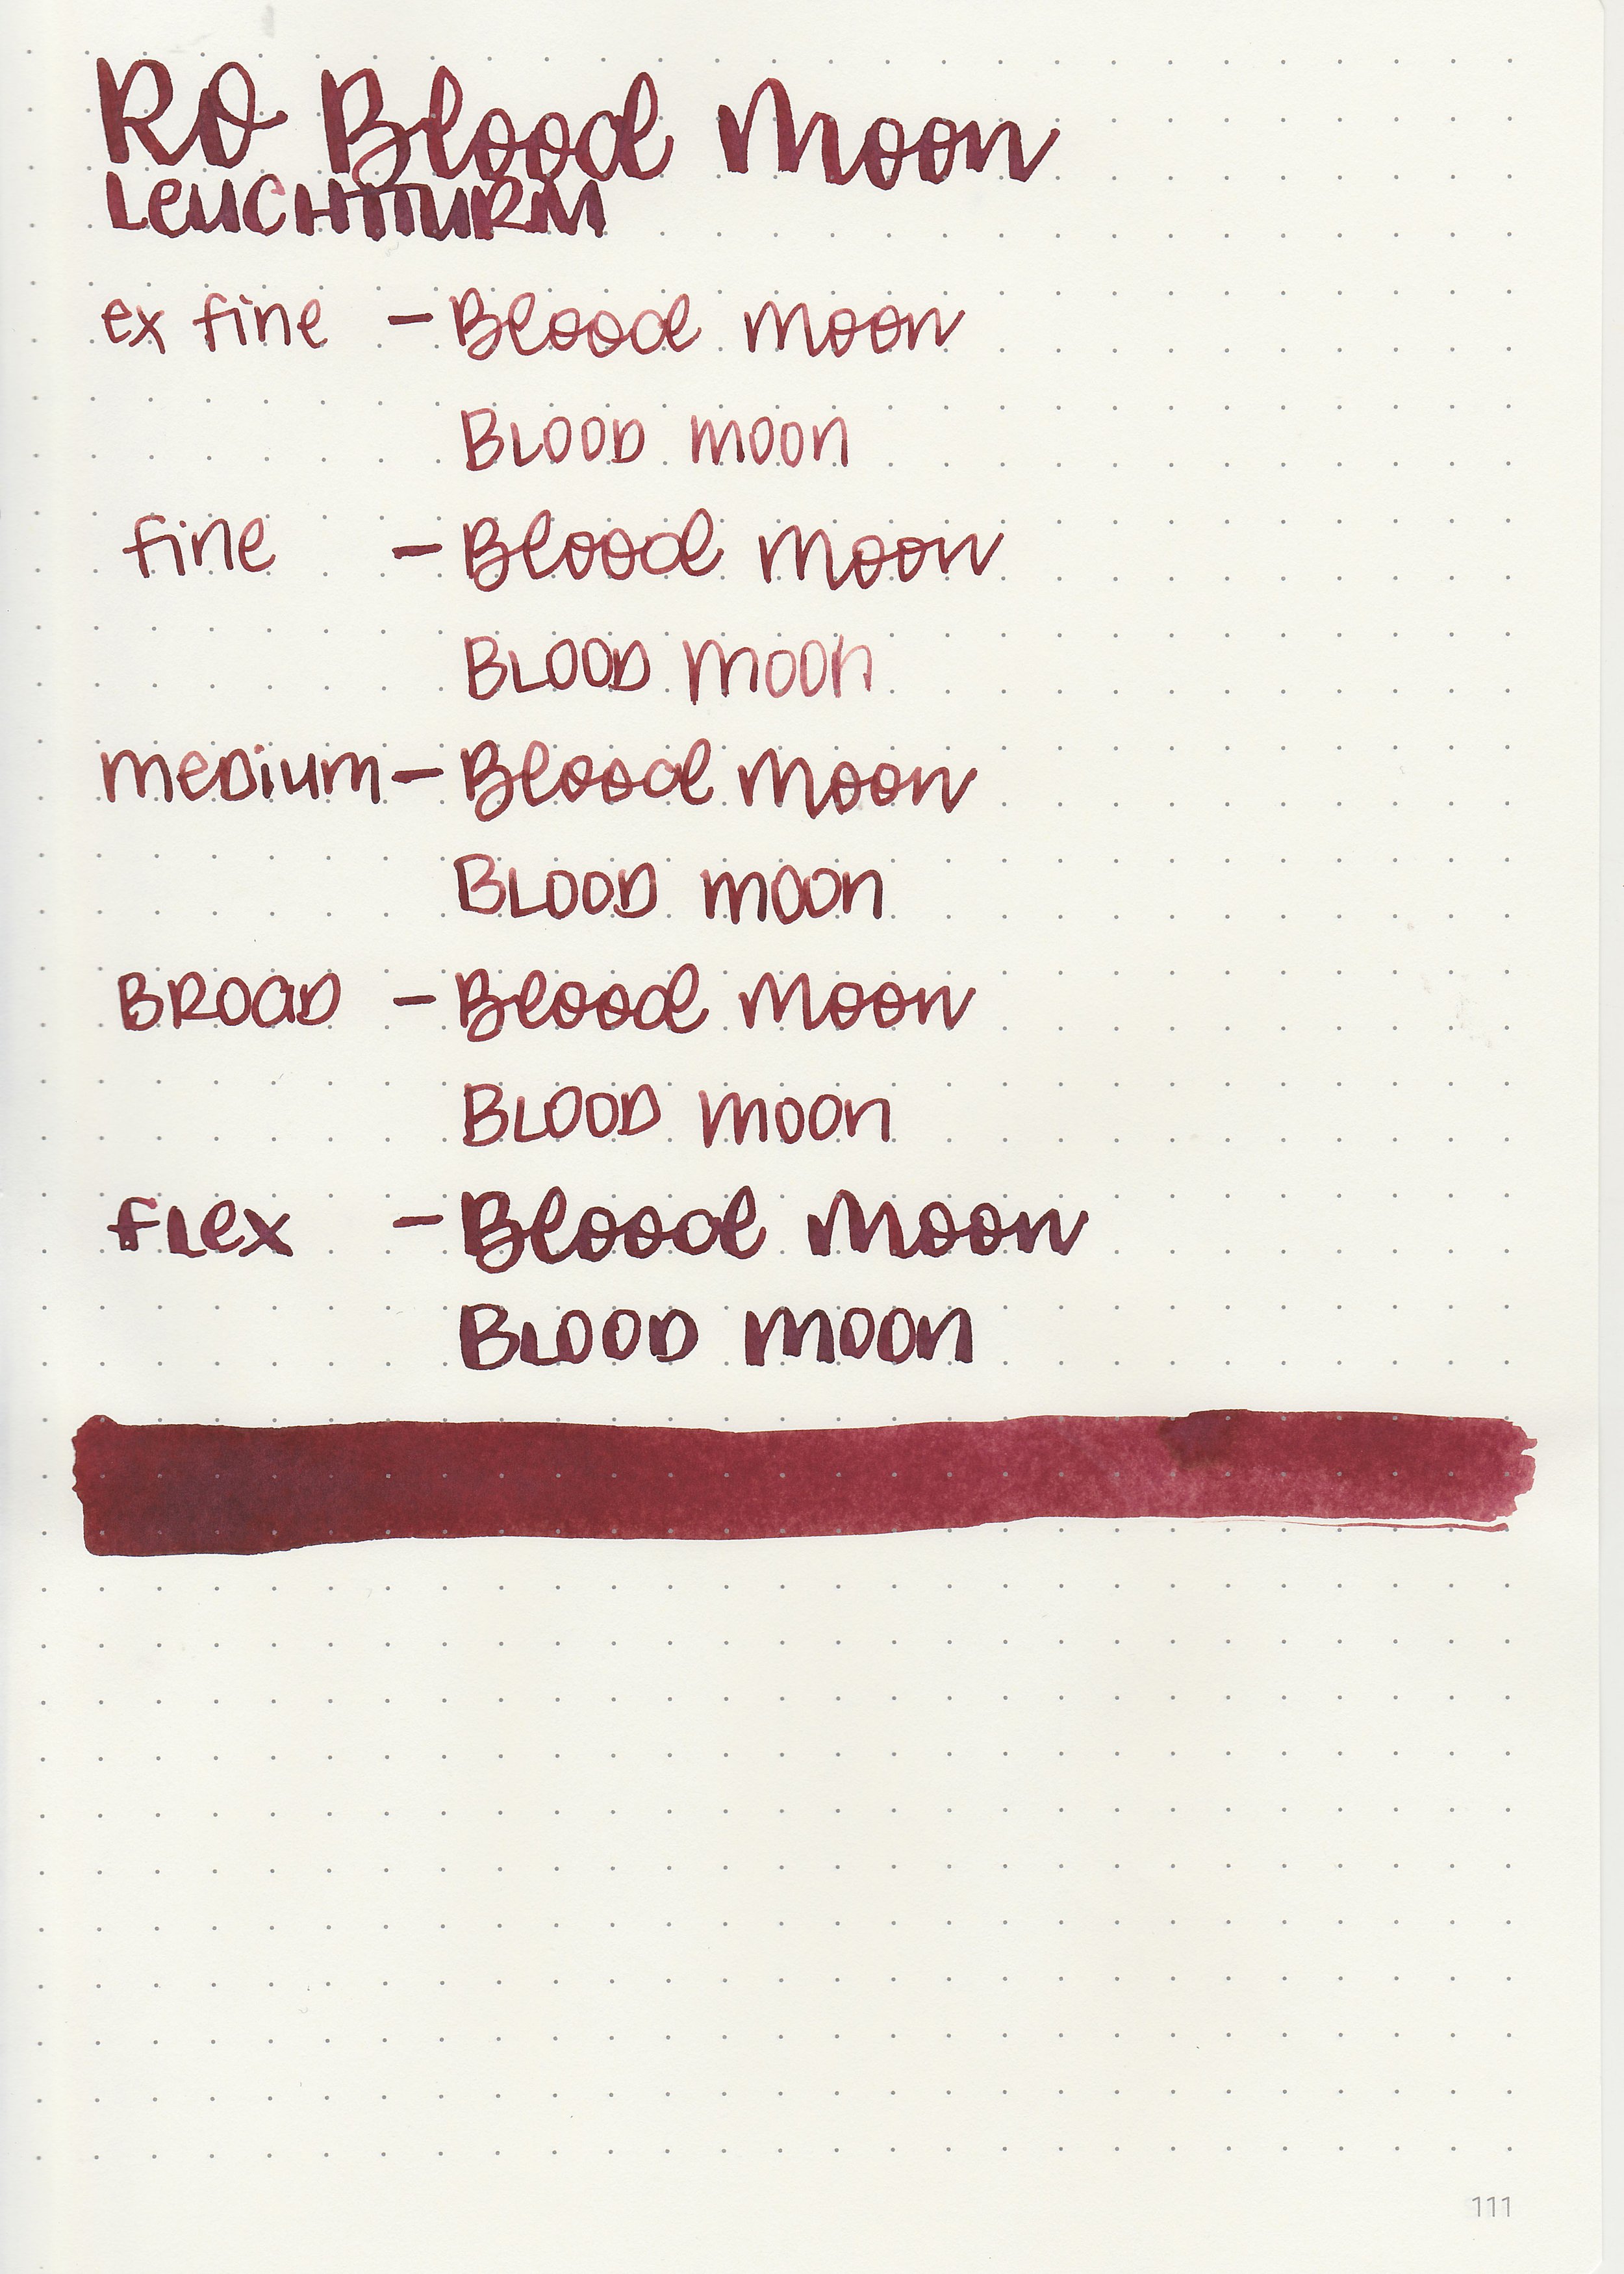 RO Blood Moon
LeUCHTTURM
ex fine - Blood moon
BLOOD moon
fine - Blood Moon
BLOOD moon
meDium - Blood Moon
BLOOD moon
BROaD - Blood Moon
BLOOD moon
fLex - Blood Moon
BLOOD moon
111